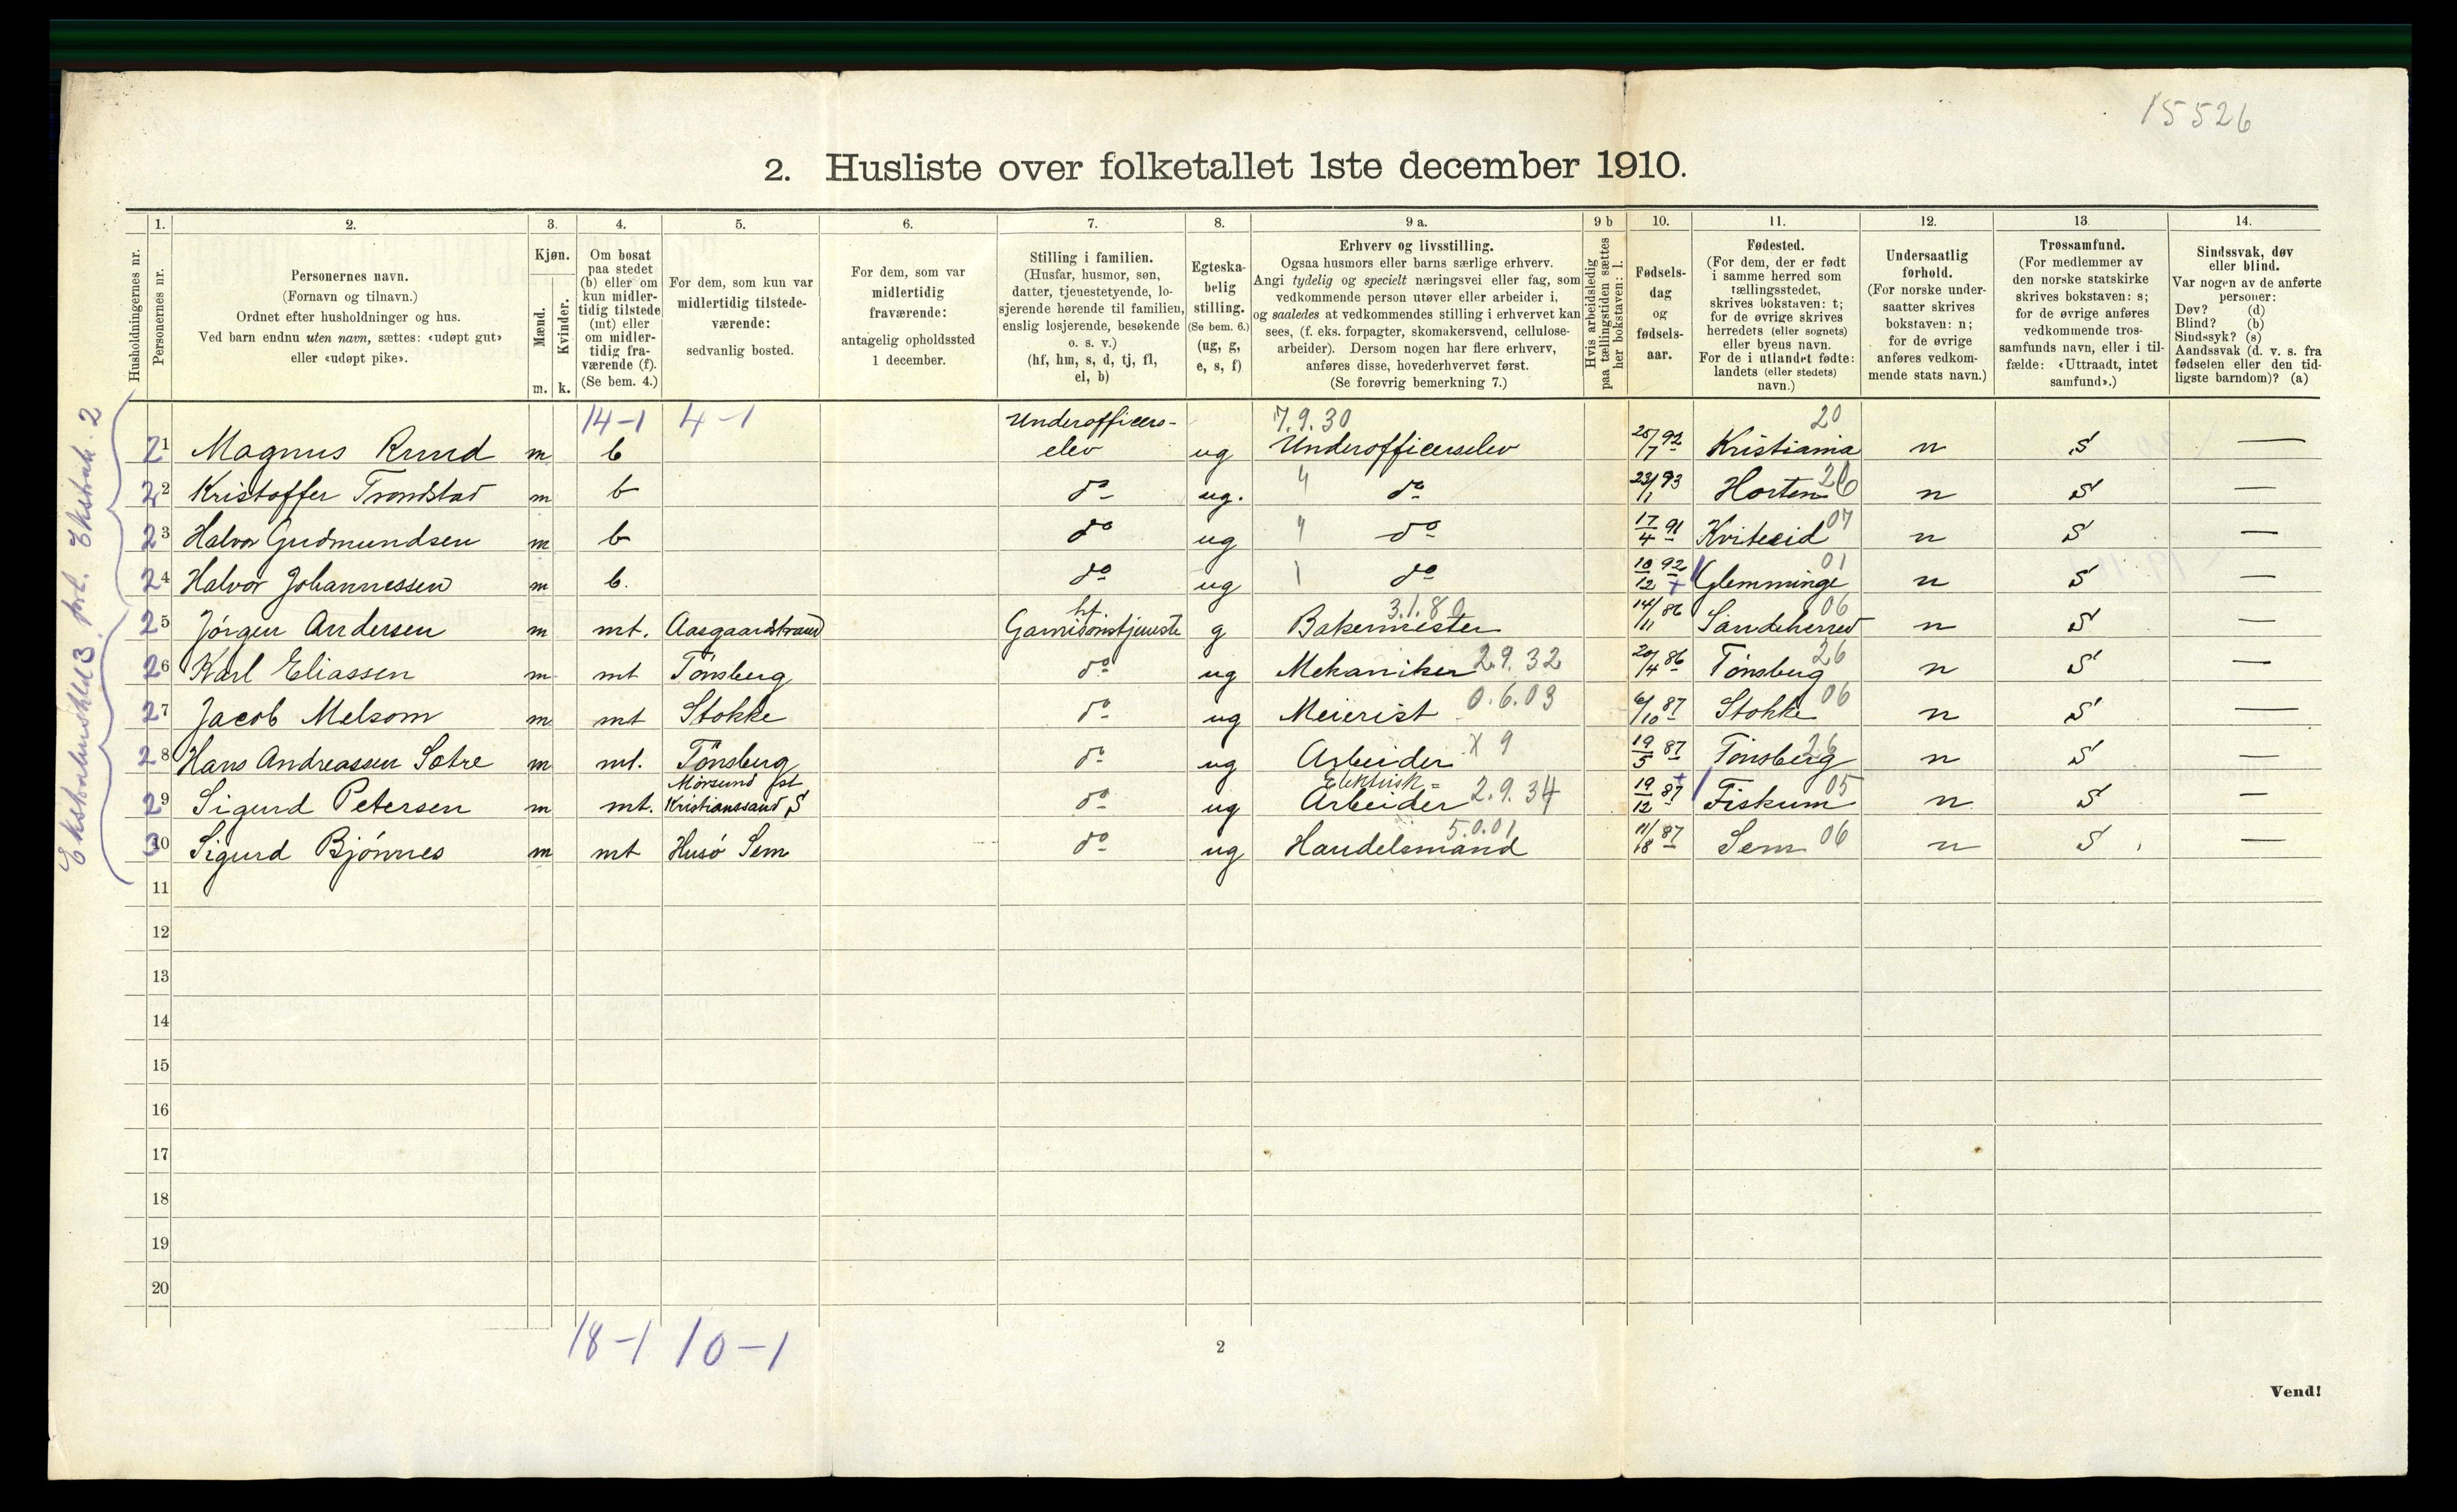 15526
2. Husliste over folketallet 1ste december 1910.
1. 2. 3. 4. 5. 6. 7. 8. 9 a. 9 b 10. 11. 12. 13. 14.
Husholdningernes nr.
Personernes nr.
Personernes navn.
(Fornavn og tilnavn.)
Ordnet efter husholdninger og hus.
Ved barn endnu uten navn, sættes: «udøpt gut»
eller «udøpt pike».
Kjøn.
Mænd.
Kvinder.
m. k.
Om bosat
paa stedet
(b) eller om
kun midler-
tidig tilstede
(mt) eller
om midler-
tidig fra-
værende (f).
(Se bem. 4.)
For dem, som kun var
midlertidig tilstede-
værende:
sedvanlig bosted.
For dem, som var
midlertidig
fraværende:
antagelig opholdssted
1 december.
Stilling i familien.
(Husfar, husmor, søn,
datter, tjenestetyende, lo-
sjerende hørende til familien,
enslig losjerende, besøkende
o. s. v.)
(hf, hm, s, d, tj, fl,
el, b)
Egteska-
belig
stilling.
(Se bem. 6.)
(ug, g,
e, s, f)
Erhverv og livsstilling.
Ogsaa husmors eller barns særlige erhverv.
Angi tydelig og specielt næringsvei eller fag, som
vedkommende person utøver eller arbeider i,
og saaledes at vedkommendes stilling i erhvervet kan
sees, (f. eks. forpagter, skomakersvend, cellulose-
arbeider). Dersom nogen har flere erhverv,
anføres disse, hovederhvervet først.
(Se forøvrig bemerkning 7.)
Hvis arbeidsledig
paa tællingstiden sættes
her bokstaven: l.
Fødsels-
dag
og
fødsels-
aar.
Fødested.
(For dem, der er født
i samme herred som
tællingsstedet,
skrives bokstaven: t;
for de øvrige skrives
herredets (eller sognets)
eller byens navn.
For de i utlandet fødte:
landets (eller stedets)
navn.)
Undersaatlig
forhold.
(For norske under-
saatter skrives
bokstaven: n;
for de øvrige
anføres vedkom-
mende stats navn.)
Trossamfund.
(For medlemmer av
den norske statskirke
skrives bokstaven: s;
for de øvrige anføres
vedkommende tros-
samfunds navn, eller i til-
fælde: «Uttraadt, intet
samfund».)
Sindssvak, døv
eller blind.
Var nogen av de anførte
personer:
Døv? (d)
Blind? (b)
Sindssyk? (s)
Aandssvak (d. v. s. fra
fødselen eller den tid-
ligste barndom)? (a)
14-1 4-1 Underofficers- 7.9.30 20
21 Magnus Ruud m b elev ug Underofficerselev 25/7 92 Kristiania n S —
22 Kristoffer Trondstad m b do ug. " do 23/1 93 Horten 26 n S —
23 Halvor Gudmundsen m b do ug " do 17/4 91 Kviteseid 07 n S —
24 Halvor Johannessen m b. do ug " do 18/12 92 + Glemminge 01 n S —
hf. 3.1.80 06
25 Jörgen Andersen m mt. Aasgaardstrand Garnisonstjeneste g Bakermester 14/11 86 Sandeherred n S —
26 Karl Eliassen m mt Tönsberg do ug Mekaniker 2.9.32 20/4 86 Tönsberg 26 n S —
27 Jacob Melsom m mt Stokke do ug Meierist 0.6.03 6/10 87 Stokke 06 n S —
28 Hans Andreassen Sætre m mt. Tönsberg do ug Arbeider X 9 19/5 87 Tönsberg 26 n S —
Elektrisk =
29 Sigurd Petersen m mt. Kristianssand S do ug Arbeider 2.9.34 19/12 87 + Fiskum 05 n S —
5.0.01
30 Sigurd Bjönnes m mt Husö Sem do ug Handelsmand 11/8 87 Sem 06 n S —
11
12
13
14
15
16
17
18
19
20
18-1 10-1
2
Vend!